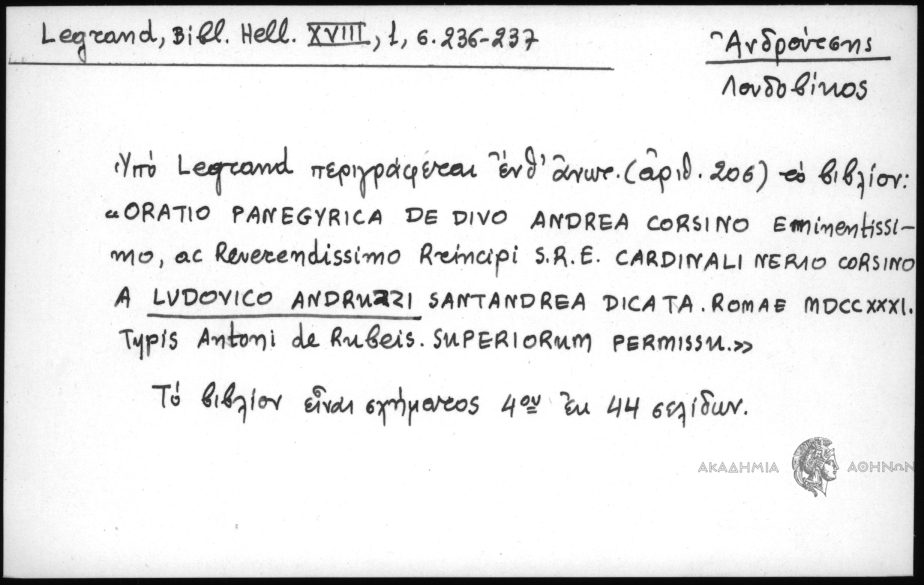 Legrand, Bibl. Hell. XVIII, 1, σ. 236-237
Ἀνδρούτσης
Λουδοβίκος
Ὑπὸ Legrand περιγράφεται ἐνθ' ἄνωτ. (ἀριθ. 206) τὸ βιβλίον:
«ORATIO PANEGYRICA DE DIVO ANDREA CORSINO Eminentissi-
mo, ac Reverendissimo Principi S.R.E. CARDINALI NERIO CORSINO
A LUDOVICO ANDRUZZI SANTANDREA DICATA. ROMAE MDCCXXXI.
Typis Antoni de Rubeis. SUPERIORUM PERMISSU.»
Τὸ βιβλίον εἶναι σχήματος 4ου ἐκ 44 σελίδων.
ΑΚΑΔΗΜΙΑ ΑΘΗΝΩΝ